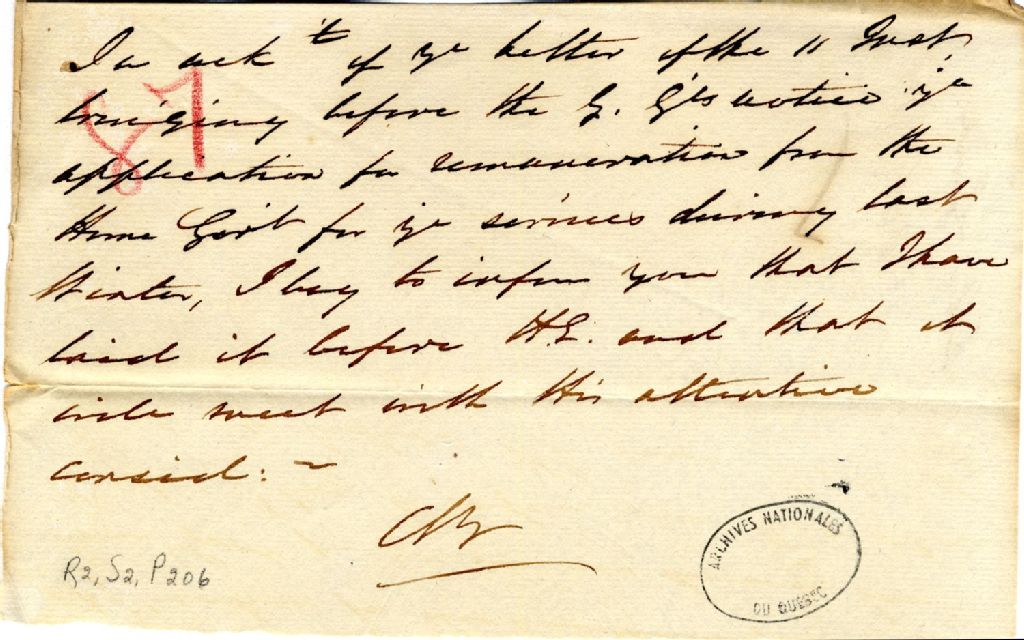 In ack^t of y^r letter of the 11 Inst,
bringing before the G. G^ls notice y^r
application for remuneration from the
Home Gov^t for y^r services during last
Winter, I beg to inform you that I have
laid it before H.E. and that it
will meet with His attentive
consid: ~
87
R2, S2, P206
ARCHIVES NATIONALES
DU QUÉBEC